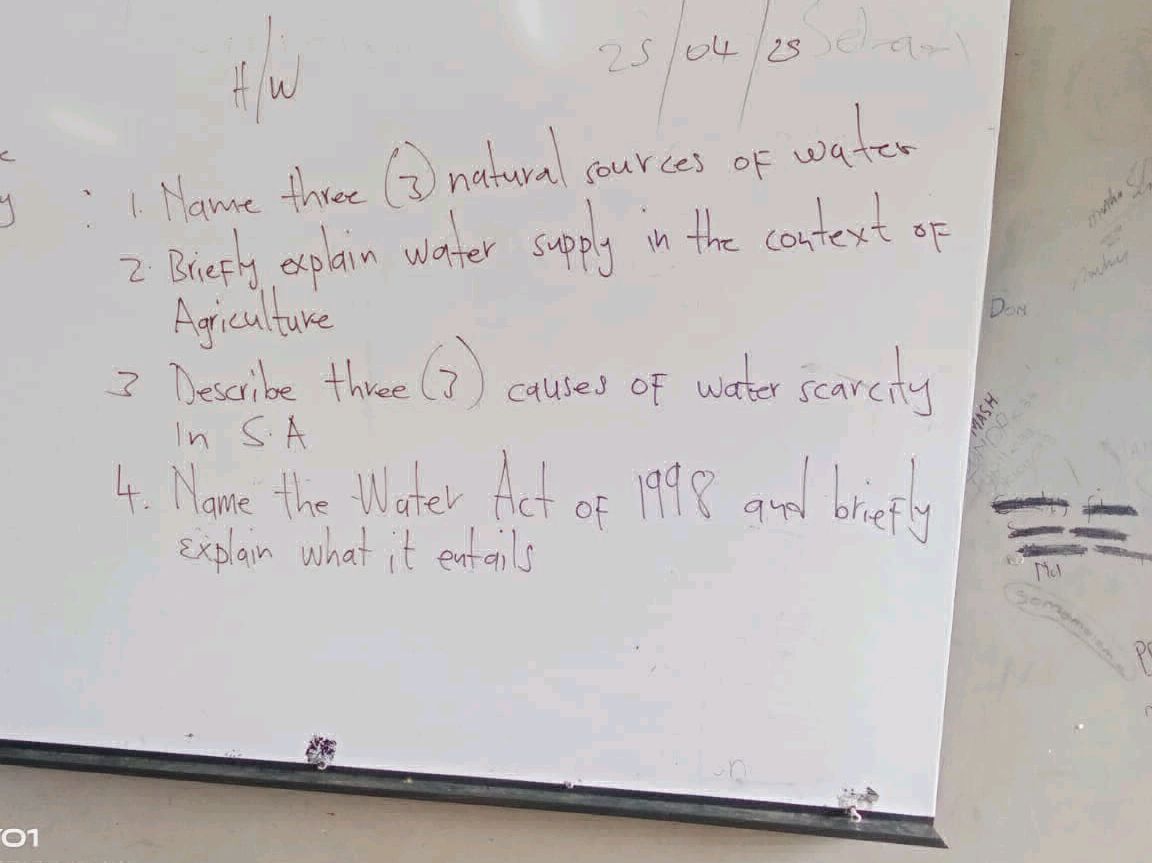 H/W
25/04/25
y : 1. Name three (3) natural sources of water
2. Briefly explain water supply in the context of
Agriculture
3 Describe three (3) causes of water scarcity
In S.A
4. Name the Water Act of 1998 and briefly
explain what it entails
DON
MASH